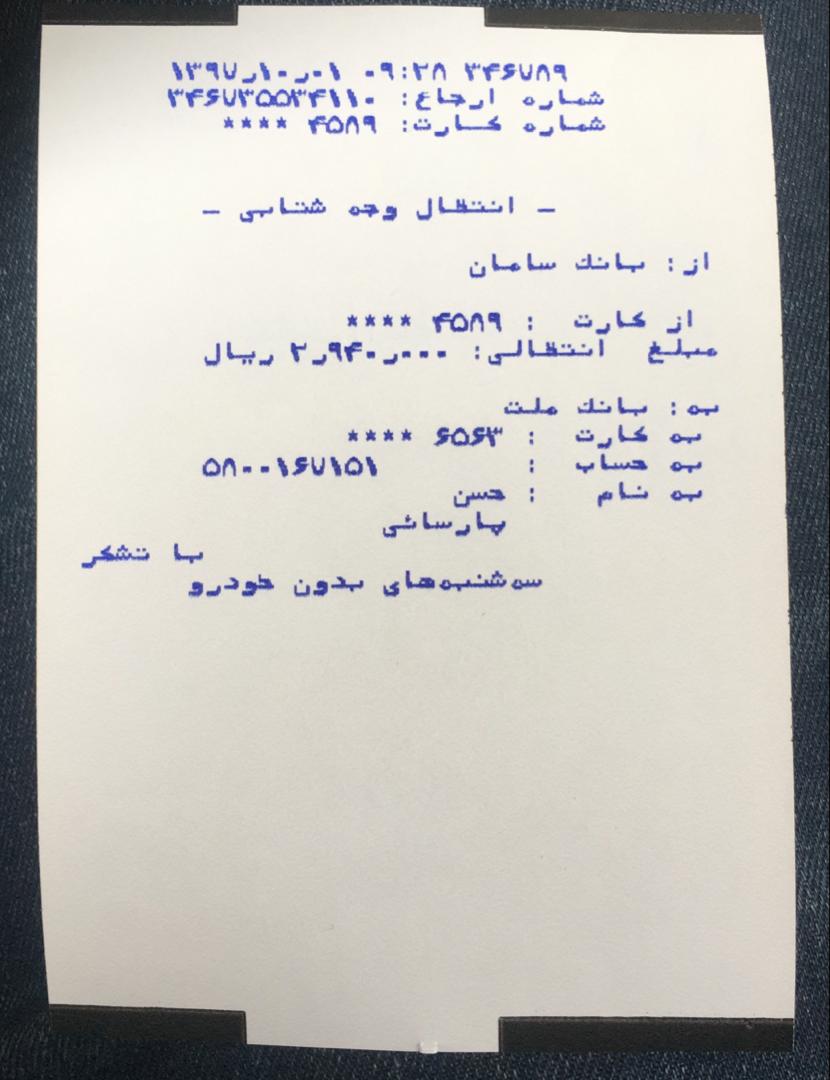 ۱۳۹۷٫۱۰٫۰۱ ۰۹:۲۸ ۳۴۶۷۸۹
شماره ارجاع: ۳۴۶۷۳۵۵۳۴۱۱۰
شماره کارت: ۴۵۸۹ ****
- انتقال وجه شتابی -
از: بانک سامان
از کارت : ۴۵۸۹ ****
مبلغ انتقالی: ۲٫۹۴۰٫۰۰۰ ریال
به: بانک ملت
به کارت : ۶۵۶۳ ****
به حساب : ۵۸۰۰۱۶۷۱۵۱
به نام : حسن
پارسائی
با تشکر
سه‌شنبه‌های بدون خودرو